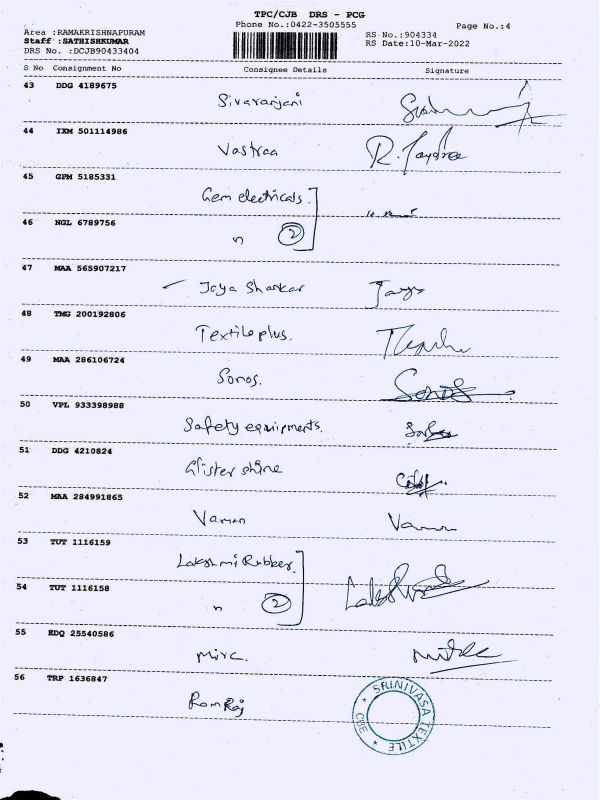 TPC/CJB DRS - PCG
Phone No.:0422-3505555
Page No.:4
Area :RAMAKRISHNAPURAM
RS No.:904334
Staff :SATHISHKUMAR
RS Date:10-Mar-2022
DRS No. :DCJB90433404
S No Consignment No Consignee Details Signature
43 DDG 4189675
Sivaranjani
44 IXM 501114986
Vastraa R. Jayshree
45 GPM 5185331
Gem electricals.
46 NGL 6789756
" 2
47 MAA 565907217
Jaya Shankar Jaya
48 TMG 200192806
Textile plus.
49 MAA 286106724
Sonos. Sonos
50 VPL 933398988
Safety equipments.
51 DDG 4210824
Glister shine
52 MAA 284991865
Vaman
53 TUT 1116159
Lakshmi Rubber.
54 TUT 1116158
" 2
55 EDQ 25540586
Mirc.
56 TRP 1636847
RamRaj
SRINIVASA TEXTILE
CBE